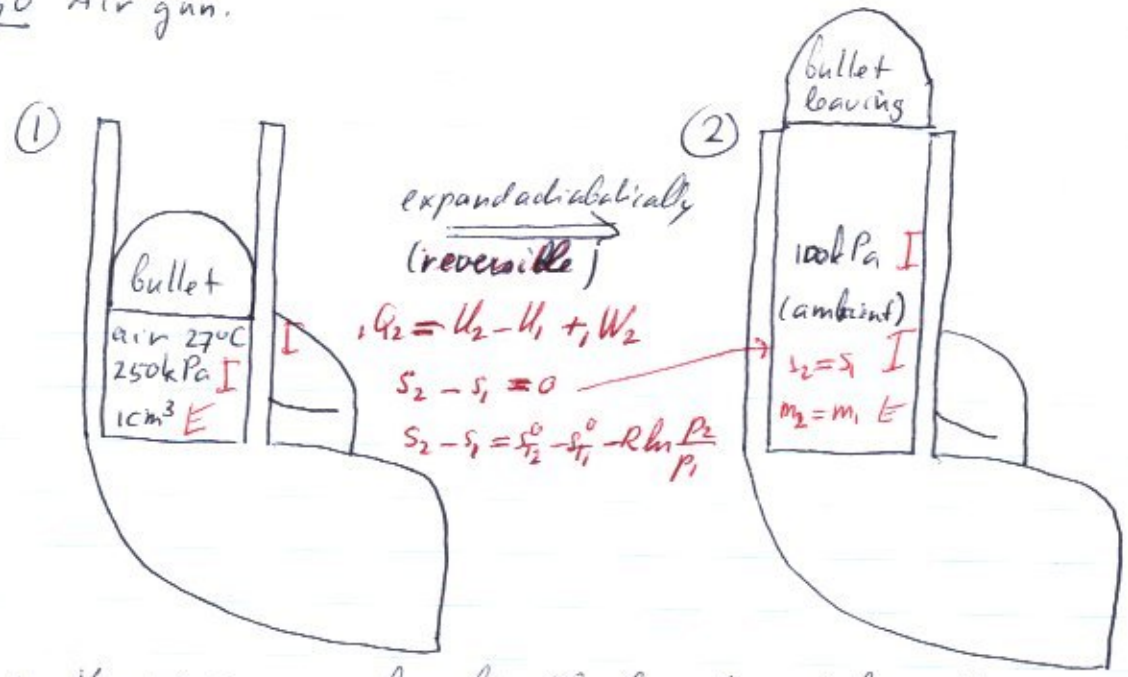 Air gun.
①
bullet
air 27°C I
250kPa I
1cm³ E
expand adiabatically
(reversible)
₁Q₂ = U₂ - U₁ + ₁W₂
s₂ - s₁ = 0
s₂ - s₁ = s°T₂ - s°T₁ - R ln p₂/p₁
②
bullet
leaving
100kPa I
(ambient)
s₂ = s₁ I
m₂ = m₁ E